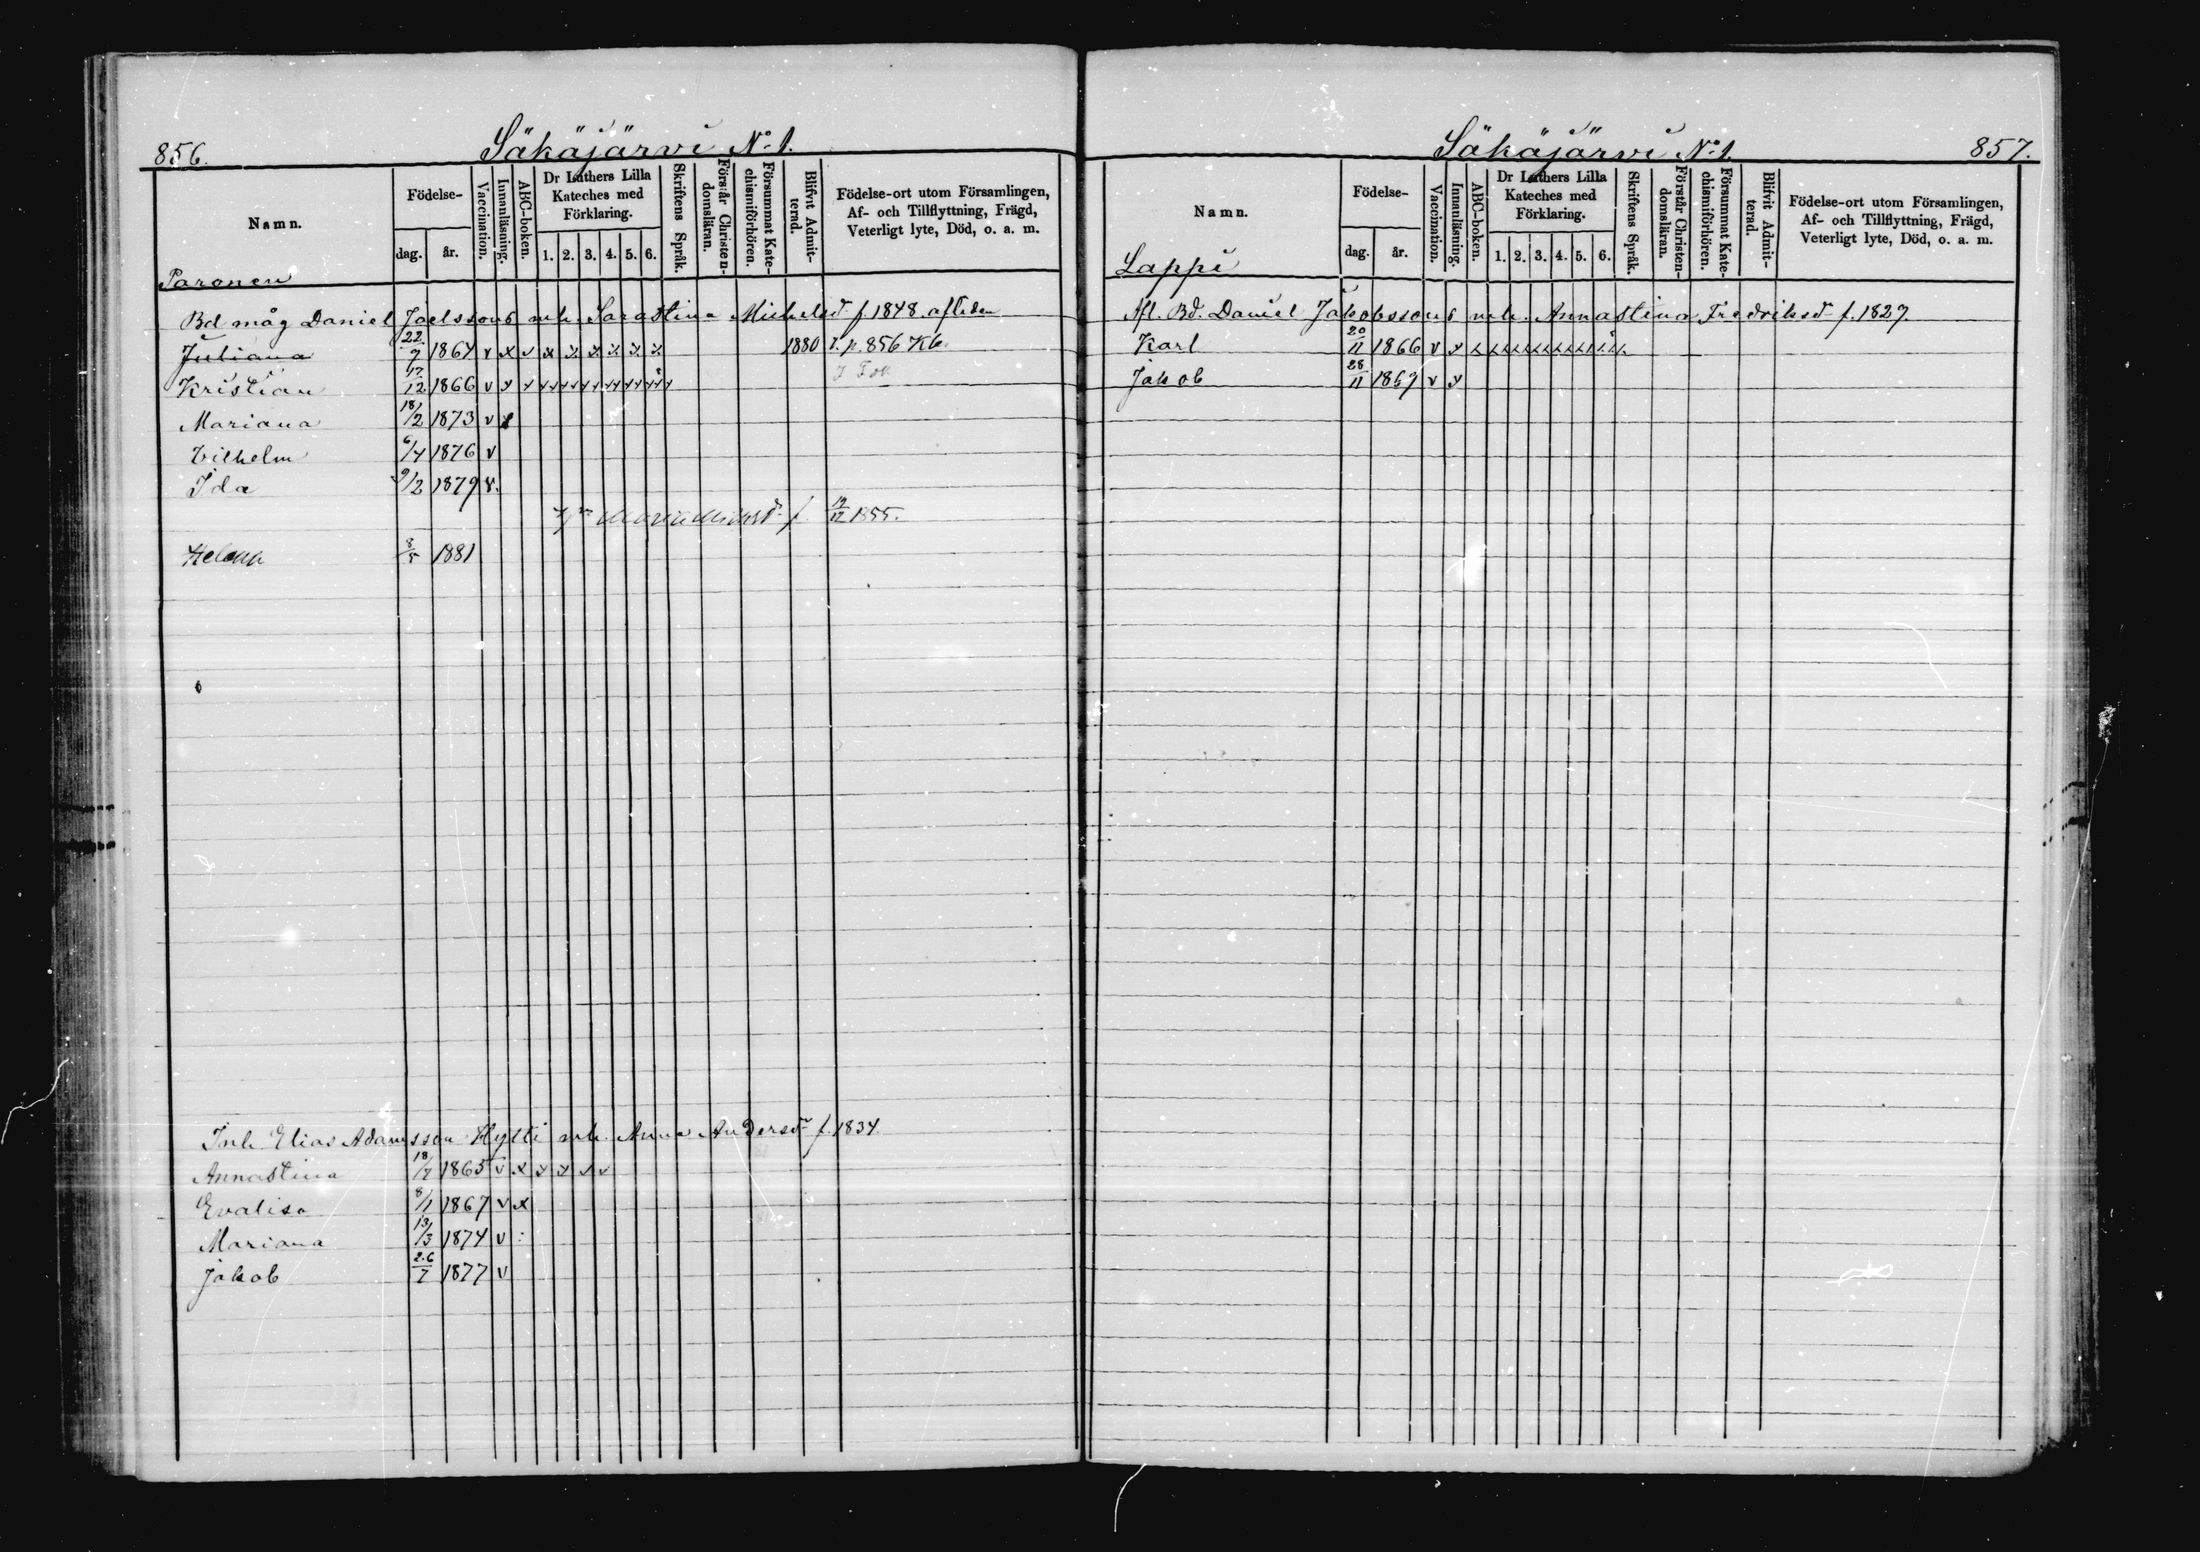 856.
Säkäjärvi No 1.
Namn.
Födelse-
dag. år.
Vaccination.
Innanläsning.
ABC-boken.
Dr Luthers Lilla Kateches med Förklaring.
1. 2. 3. 4. 5. 6.
Skriftens Språk.
Förstår Christendomsläran.
Försummat Katechismiförhören.
Blifvit Admitterad.
Födelse-ort utom Församlingen,
Af- och Tillflyttning, Frägd,
Veterligt lyte, Död, o. a. m.
Paronen
Bd måg Daniel Joelssons mh. Sarastina Michelsd f 1848 afliden
Juliana 22/7 1864 v x v x x x x x x 1880 T. p. 856 Kb.
Kristian 17/12 1866 v x
Mariana 18/2 1873 v x
Vilhelm 6/7 1876 v
Ida 9/2 1879 v.
Maria Michelsd f. 19/12 1855.
Helena 8/5 1881
Inh Elias Adamsson Hytti mh. Anna Andersd f. 1834.
Annastina 18/7 1865 v x x x v v
Evalisa 8/1 1867 v x
Mariana 13/3 1874 v :
Jakob 26/7 1877 v
Säkäjärvi No 1.
857.
Namn.
Födelse-
dag. år.
Vaccination.
Innanläsning.
ABC-boken.
Dr Luthers Lilla Kateches med Förklaring.
1. 2. 3. 4. 5. 6.
Skriftens Språk.
Förstår Christendomsläran.
Försummat Katechismiförhören.
Blifvit Admitterad.
Födelse-ort utom Församlingen,
Af- och Tillflyttning, Frägd,
Veterligt lyte, Död, o. a. m.
Lappi
Afl. Bd. Daniel Jakobssons mh. Annastina Fredriksd f. 1827.
Karl 20/11 1866 v x
Jakob 28/11 1869 v x